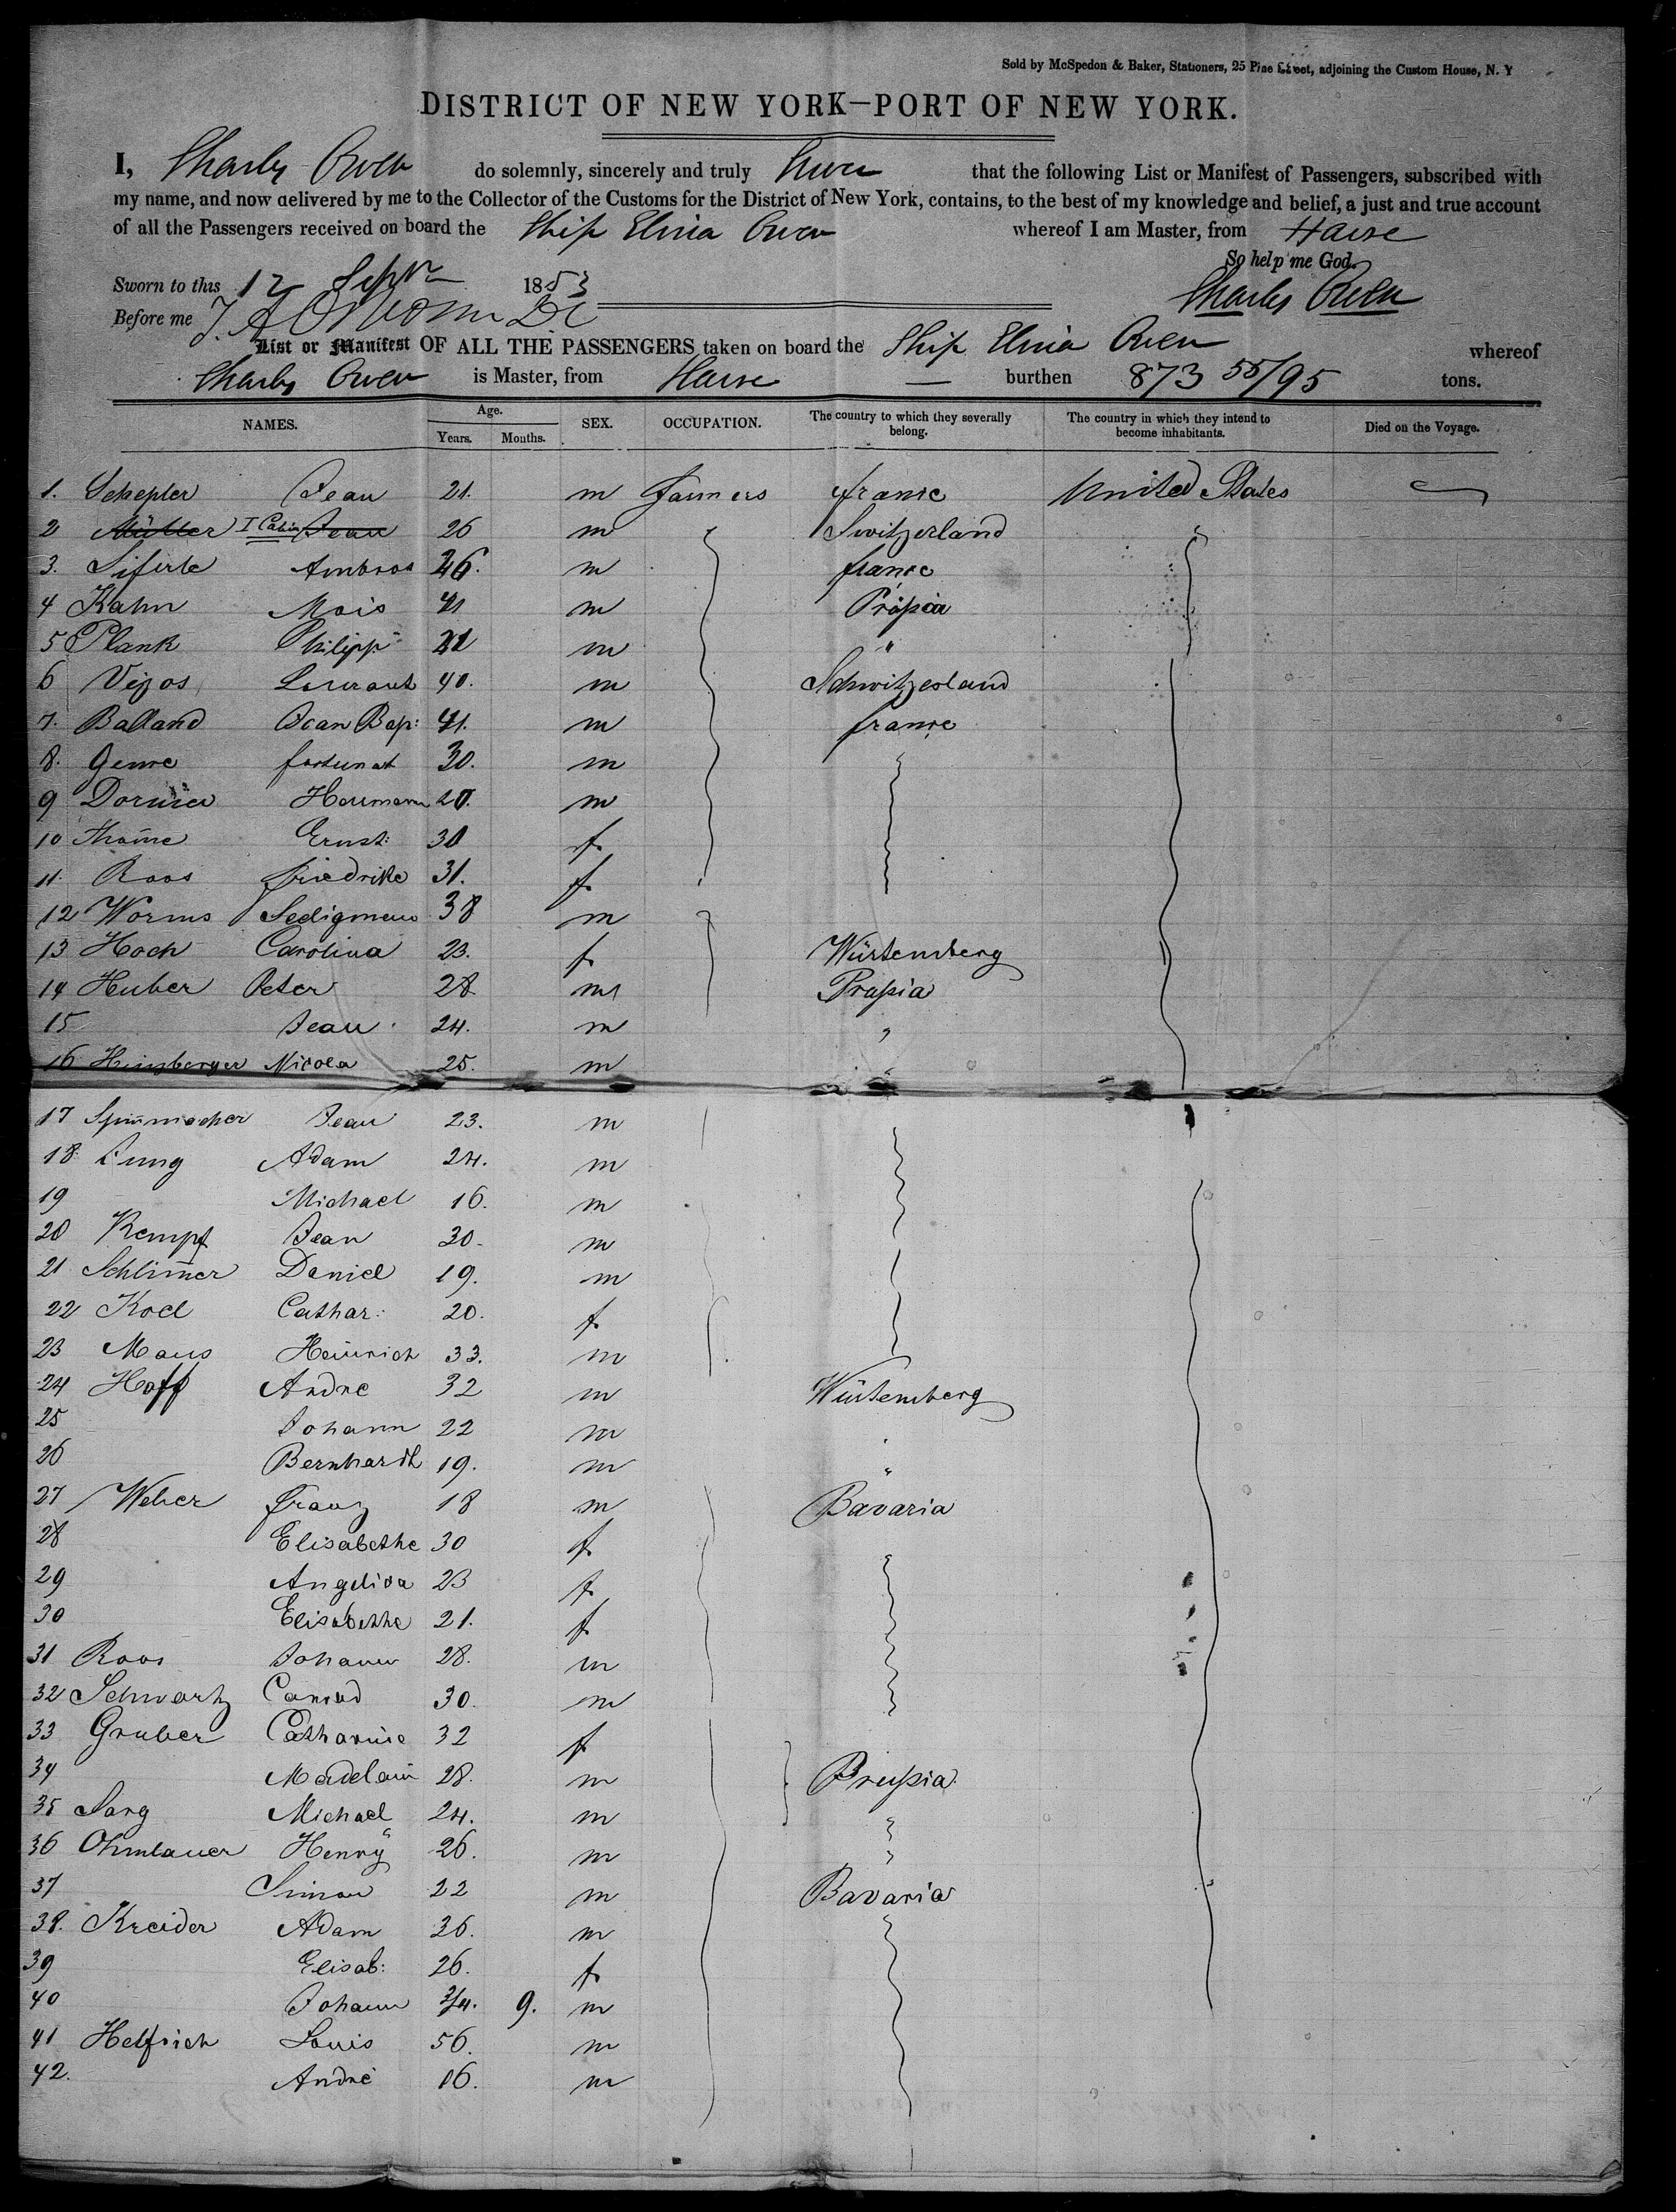 Sold by McSpedon & Baker, Stationers, 25 Pine Street, adjoining the Custom House, N. Y
DISTRICT OF NEW YORK—PORT OF NEW YORK.
I, Charles Owen do solemnly, sincerely and truly Swear that the following List or Manifest of Passengers, subscribed with
my name, and now delivered by me to the Collector of the Customs for the District of New York, contains, to the best of my knowledge and belief, a just and true account
of all the Passengers received on board the Ship Elvira Owen whereof I am Master, from Havre
So help me God.
Sworn to this 12 Septr 1853
Charles Owen
Before me
List or Manifest OF ALL THE PASSENGERS taken on board the Ship Elvira Owen whereof
Charles Owen is Master, from Havre — burthen 873 55/95 tons.
NAMES. Age. Years. Months. SEX. OCCUPATION. The country to which they severally belong. The country in which they intend to become inhabitants. Died on the Voyage.
1. Schepler Jean 21. m farmers france United States
2 Müller I Cabin Jean 26 m Switzerland
3. Siferle Ambros 26. m france
4 Kahn Mois 41 m Prußia
5 Plank Philipp 21 m "
6 Vezos Lourant 40. m Schwitzerland
7. Balland Jean Bap: 41. m france
8. Genre fortunat 30. m
9 Dornier Herrmann 20. m
10 Thome Ernst: 30 f
11. Roos friedrike 31. f
12 Worms Seligmann 38 m
13 Hoch Carolina 23. f Würtemberg
14 Huber Peter 28 m Prußia
15 Jean 24. m "
16 Heinzberger Nicola 25. m "
17 Spinnmacher Jean 23. m
18 Jung Adam 24. m
19 Michael 16. m
20 Kempf Jean 30. m
21 Schlimer Daniel 19. m
22 Koel Cathar: 20. f
23 Maus Heinrich 33. m
24 Hoff Andre 32 m Würtemberg
25 Johann 22 m "
26 Bernhardt 19. m "
27 Weber franz 18 m Bavaria
28 Elisabethe 30 f
29 Angelica 23 f
30 Elisabethe 21. f
31 Roos Johann 28. m
32 Schwartz Conrad 30. m
33 Gruber Catharine 32 f
34 Madelain 28. m Preußia
35 Sarg Michael 24. m
36 Ohmlauer Henry 26. m
37 Simon 22 m Bavaria
38. Kreider Adam 26. m
39 Elisab: 26. f
40 Johann 3/4. 9. m
41 Helfrich Louis 56. m
42. André 16. m